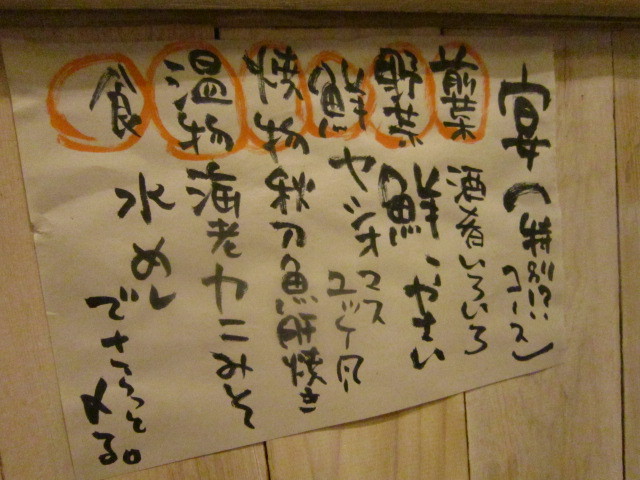 宴(特別!?コース)
前菜 酒肴いろいろ
野菜 鮮・やさい
鮮魚 ヤシオマスユッケ風
焼物 秋刀魚肝焼き
温物 海老カニみそ
食 水めしでさらっと〆る。